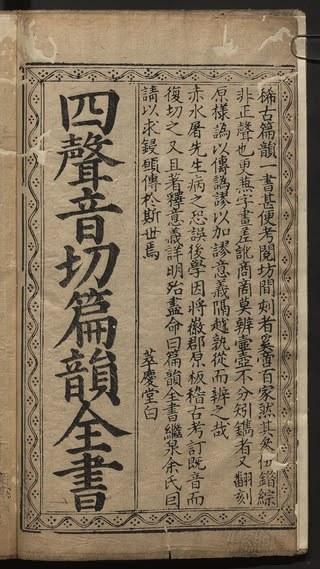 稀古篇韻一書甚便考閱坊間刻者奚啻百家然其矣伍錯綜
非正聲也更兼字畫差訛商啇莫辨壷壼不分矧鐫者又翻刻
原樣譌以傳譌謬以加謬意義隔越孰從而辨之哉
赤水屠先生病之恐誤後學因將徽郡原板稽古考訂既音而
復切之又且著釋意義詳明殆盡命曰篇韻全書繼泉余氏曰
請以求鋟頋傳於斯世焉
萃慶堂白
四聲音切篇韻全書